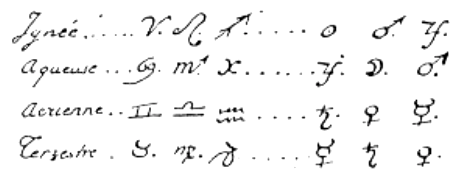 Jgnée ...... ♈. ♌. ♐. ..... ☉ ♂. ♃.
Aqueuse ... ♋. ♏. ♓. ...... ♃. ☽. ♂.
Aerienne .. ♊ ♎ ♒ ..... ♄. ♀ ☿.
Terrestre . ♉. ♍. ♑ ..... ☿ ♄ ♀.